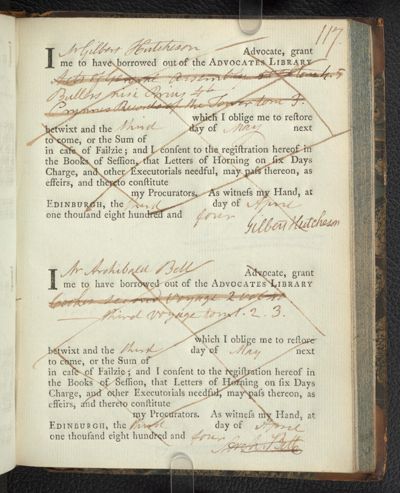 117.
I Mr Gilbert Hutcheson Advocate, grant
me to have borrowed out of the ADVOCATES LIBRARY
Acts of General Assembly
Bullers
Records of the Tower tom 3.
which I oblige me to reſtore
betwixt and the third day of May next
to come, or the Sum of
in caſe of Failzie; and I conſent to the regiſtration hereof in
the Books of Seſſion, that Letters of Horning on ſix Days
Charge, and other Executorials needful, may paſs thereon, as
effeirs, and thereto conſtitute
my Procurators. As witneſs my Hand, at
EDINBURGH, the third day of April
one thouſand eight hundred and four
Gilbert Hutcheson
I Mr Archibald Bell Advocate, grant
me to have borrowed out of the ADVOCATES LIBRARY
Cookes second Voyage 2 vols
third voyage tom 1. 2. 3.
which I oblige me to reſtore
betwixt and the third day of May next
to come, or the Sum of
in caſe of Failzie; and I conſent to the regiſtration hereof in
the Books of Seſſion, that Letters of Horning on ſix Days
Charge, and other Executorials needful, may paſs thereon, as
effeirs, and thereto conſtitute
my Procurators. As witneſs my Hand, at
EDINBURGH, the third day of April
one thouſand eight hundred and four
Arch. Bell